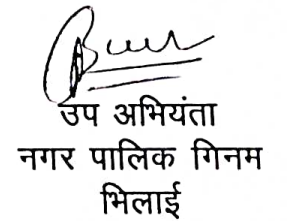 उप अभियंता
नगर पालिक गिनम
भिलाई